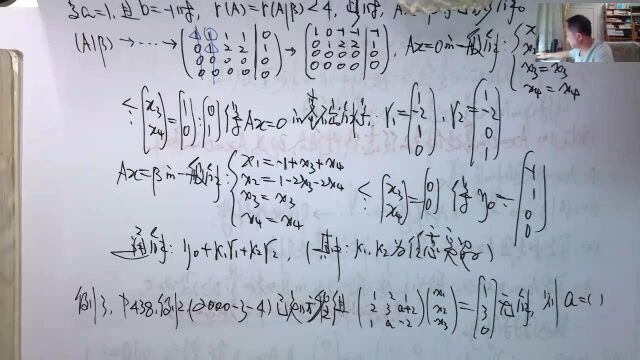 当a=1,且b=-1时, r(A)=r(A|β)<4,
(A|β)→⋯→(1 1 1 1 | 0; 0 1 2 2 | 1; 0 0 0 0 | 0; 0 0 0 0 | 0)→(1 0 -1 -1 | -1; 0 1 2 2 | 1; 0 0 0 0 | 0; 0 0 0 0 | 0), Ax=0的一般解: { x x x₃=x₃ x₄=x₄
令(x₃; x₄)=(1; 0),(0; 1)得Ax=0的基础解系: r₁=(1; -2; 1; 0), r₂=(1; -2; 0; 1)
Ax=β的一般解: { x₁=-1+x₃+x₄ x₂=1-2x₃-2x₄ x₃=x₃ x₄=x₄ 令(x₃; x₄)=(0; 0) 得 η₀=(-1; 1; 0; 0)
通解: η₀+k₁r₁+k₂r₂, (其中: k₁,k₂为任意常数)
例3, P438,例2(2000-3-4)已知方程组 (1 2 1; 2 3 a+2; 1 a -2)(x₁; x₂; x₃)=(1; 3; 0)无解,则a=( )